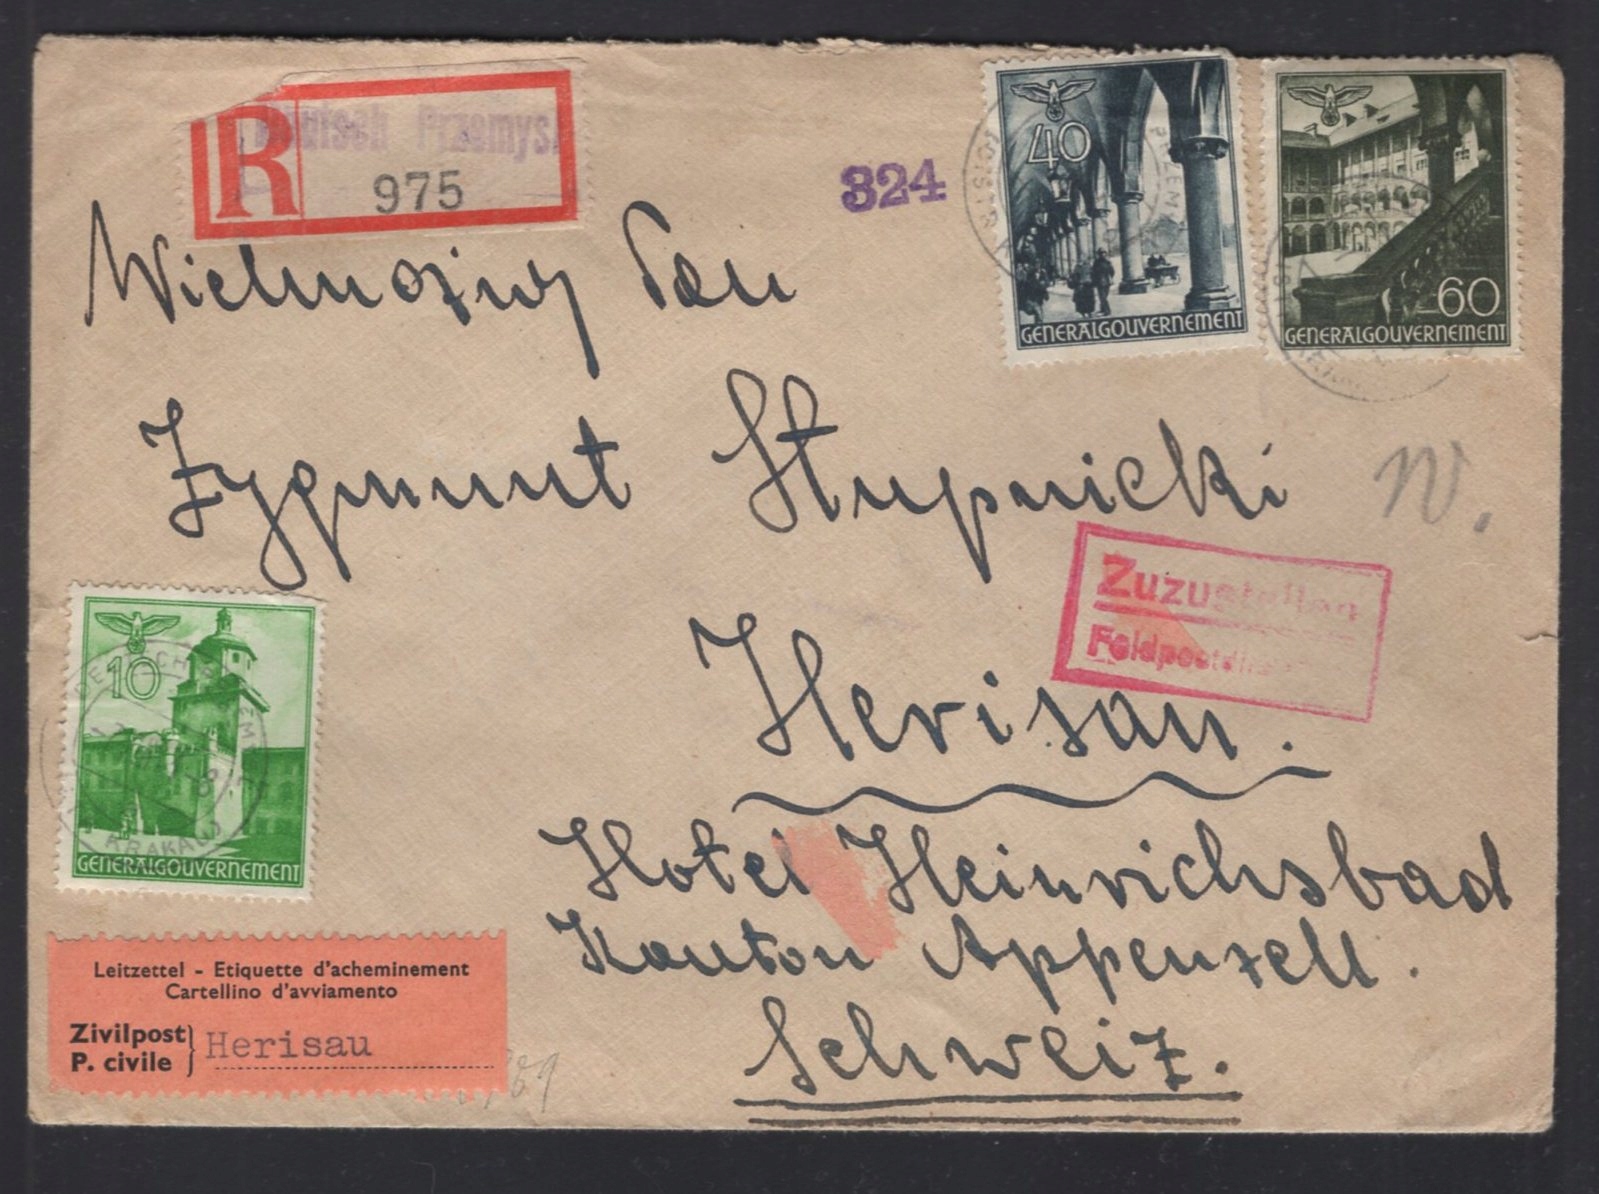 R
Deutsch Przemysl
975
324
40
GENERALGOUVERNEMENT
60
GENERALGOUVERNEMENT
Wielmożny Pan
Zygmunt Stupnicki
W.
Zuzustellen
Feldpostdirektion
Herisau.
10
GENERALGOUVERNEMENT
KRAKAU
Hotel Heinrichsbad
Kanton Appenzell.
Schweiz.
Leitzettel - Etiquette d'acheminement
Cartellino d'avviamento
Zivilpost } Herisau
P. civile